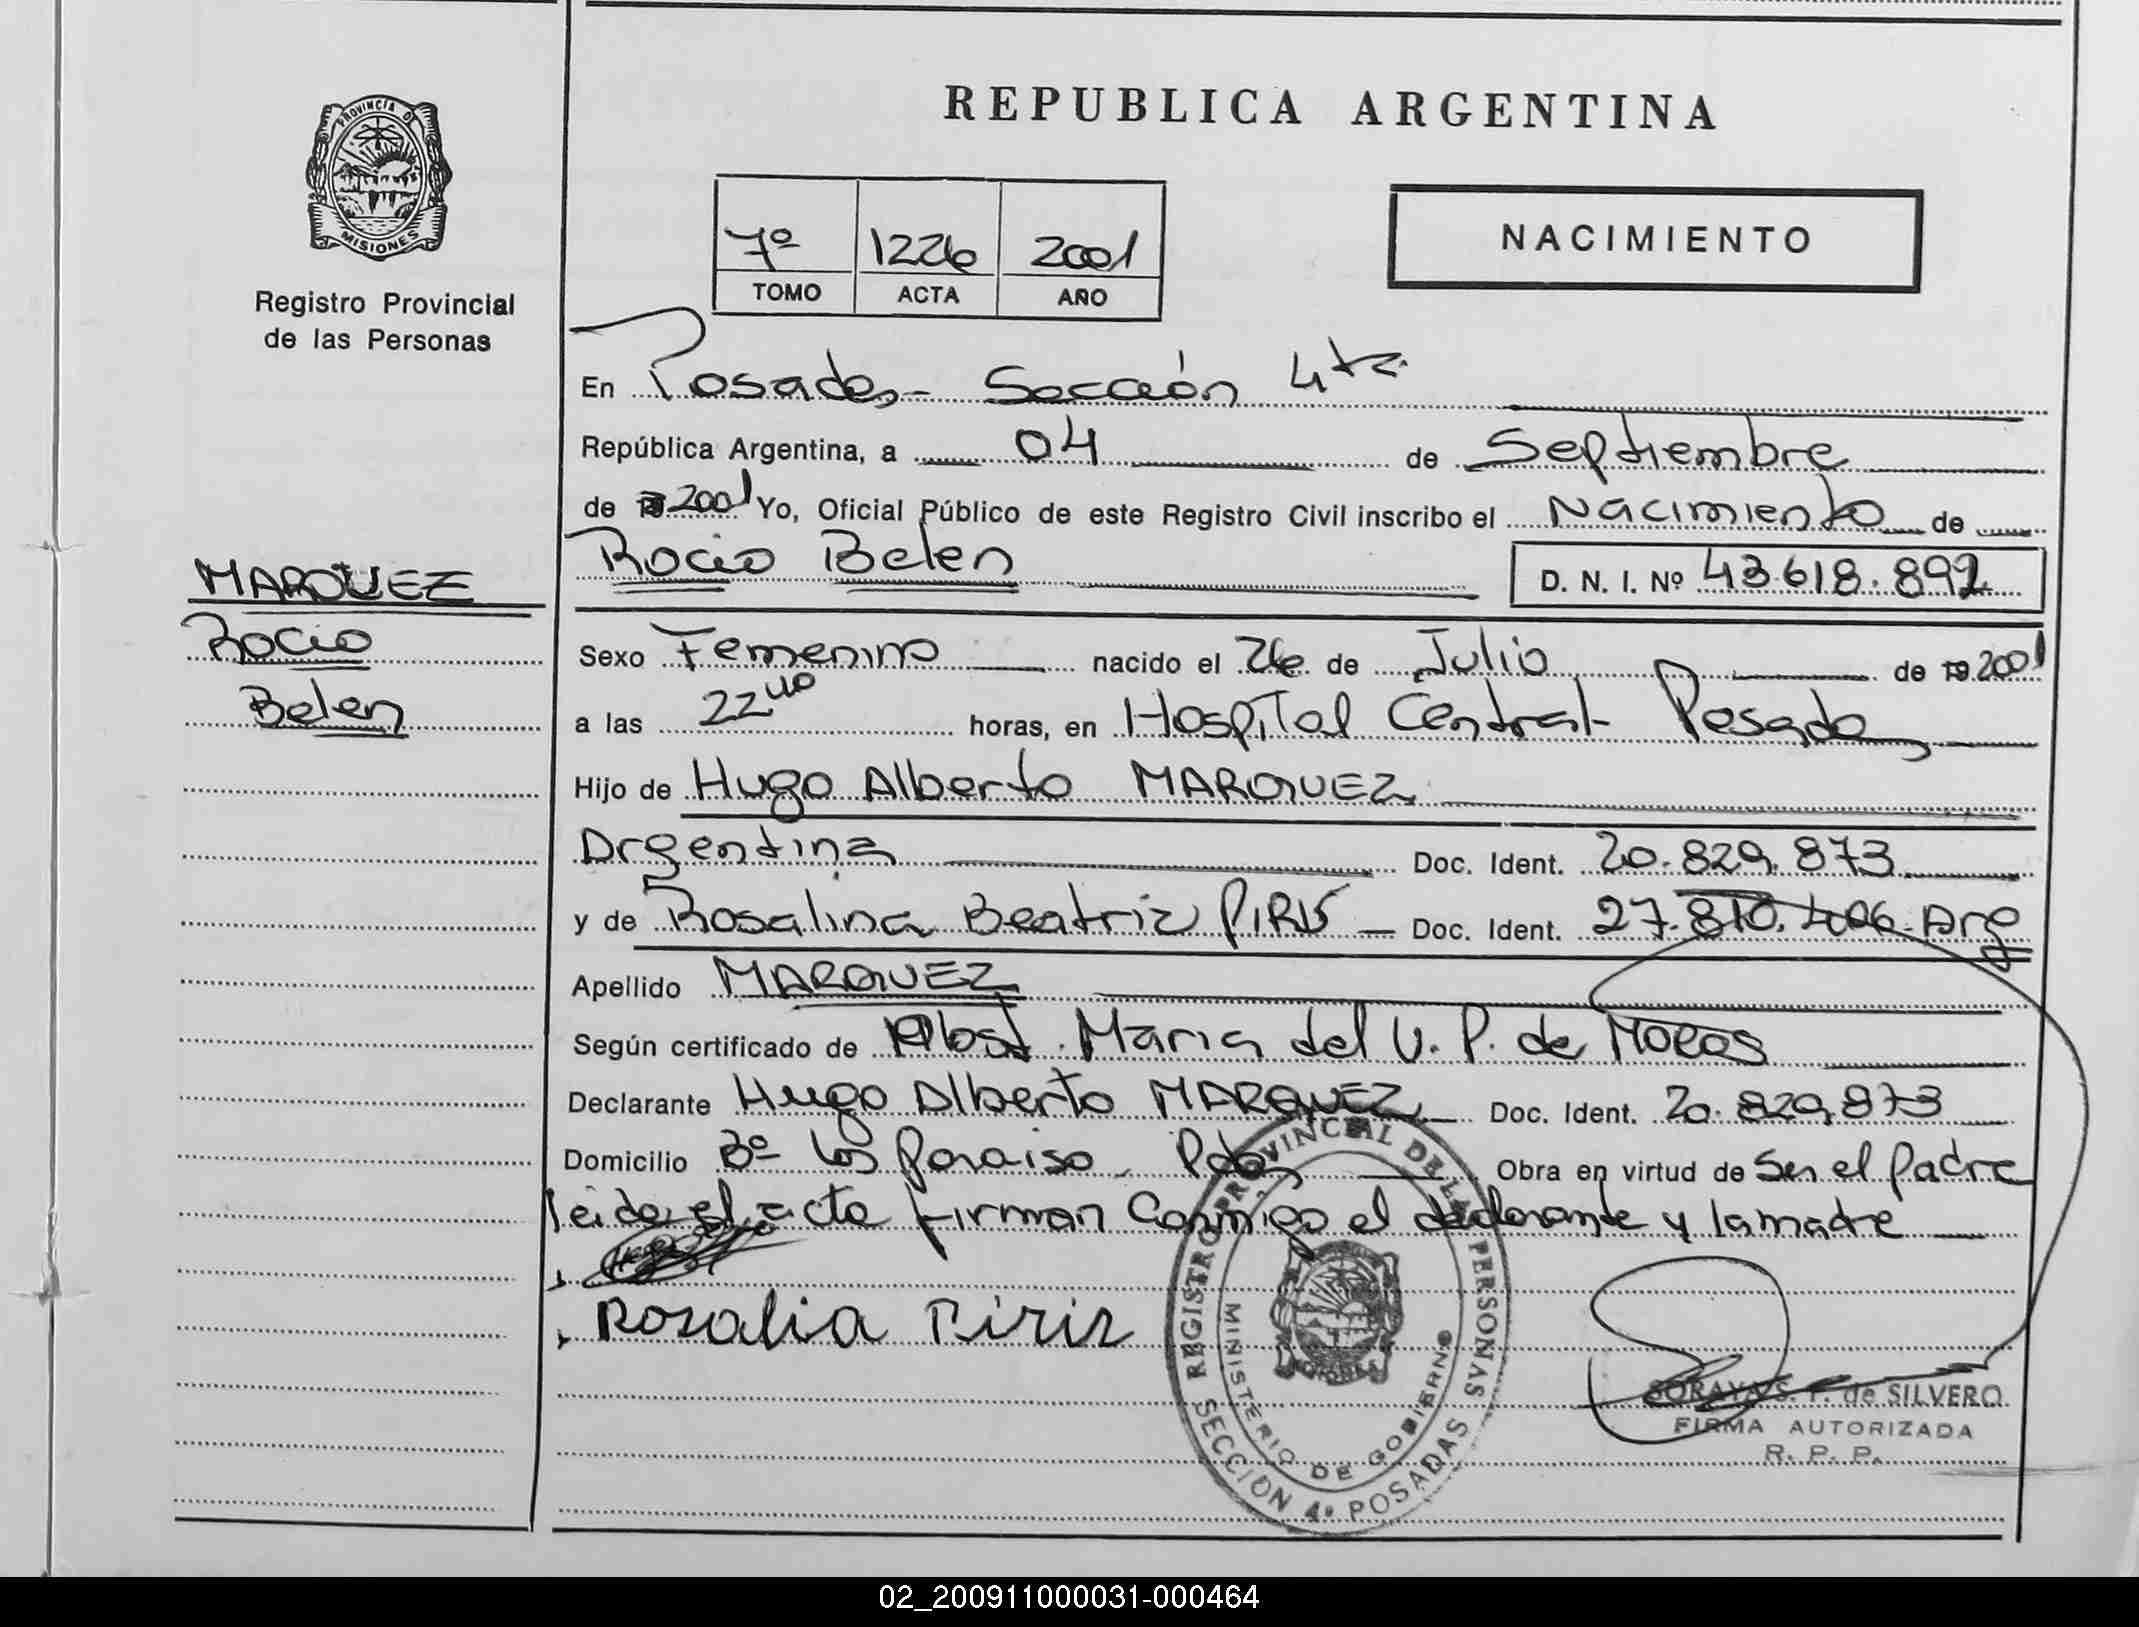 PROVINCIA DE
MISIONES
Registro Provincial
de las Personas
MARQUEZ
Rocio
Belen
REPUBLICA ARGENTINA
7º 1226 2001
TOMO ACTA AÑO
NACIMIENTO
En Posadas - Sección 4ta.
República Argentina, a 04 de Septiembre
de 2001 Yo, Oficial Público de este Registro Civil inscribo el Nacimiento de
Rocio Belen D. N. I. Nº 43.618.892
Sexo Femenino nacido el 26 de Julio de 2001
a las 22 40 horas, en Hospital Central - Posadas
Hijo de Hugo Alberto MARQUEZ
Argentina Doc. Ident. 20.829.873
y de Rosalina Beatriz PIRIS Doc. Ident. 27.810.406 Arg
Apellido MARQUEZ
Según certificado de Obst. Maria del V. P. de
Declarante Hugo Alberto MARQUEZ Doc. Ident. 20.829.873
Domicilio Bº Los Paraiso - Pdas Obra en virtud de Ser el Padre
leida el acta firman Conmigo el declarante y la madre
Rosalia Piriz
REGISTRO PROVINCIAL DE LAS PERSONAS
MINISTERIO DE GOBIERNO
SECCION 4ª POSADAS
SORAYA S. F. de SILVERO
FIRMA AUTORIZADA
R. P. P.
02_200911000031-000464